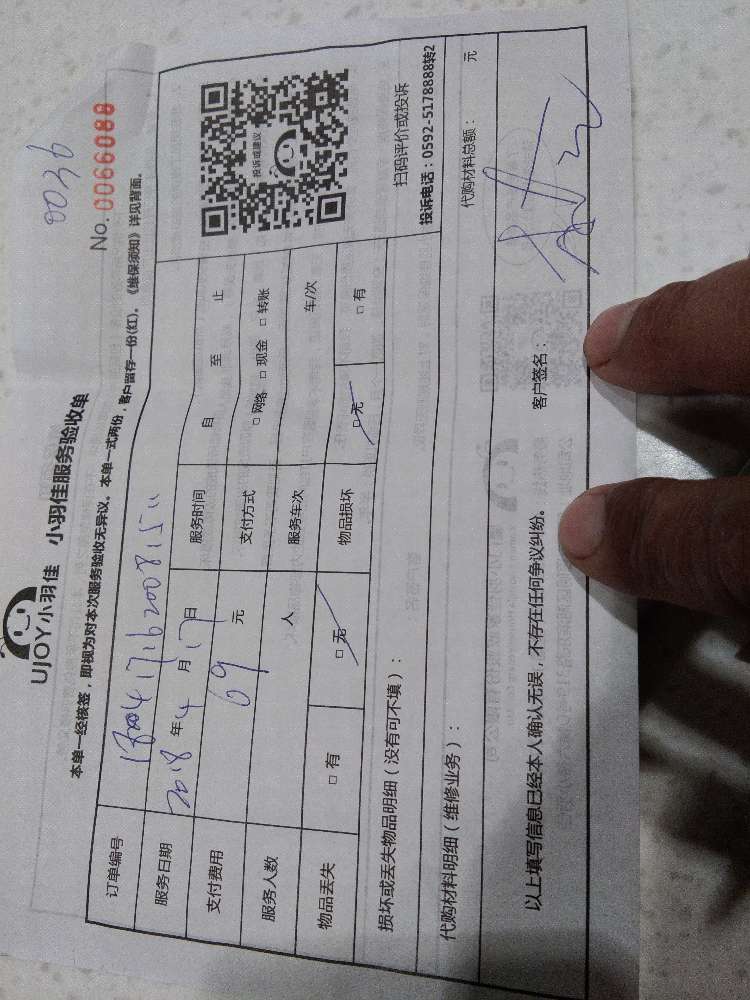 0036
No. 0066088
UJOY小羽佳 小羽佳服务验收单
本单一经核签，即视为对本次服务验收无异议。本单一式两份，客户留存一份(红)。《维保须知》详见背面。
订单编号
服务日期 2018年4月17日 服务时间 自 至 止
支付费用 69元 支付方式 □网络 □现金 □转账
服务人数 人 服务车次 车/次
物品丢失 □有 □无 物品损坏 □无 □有
投诉或建议
扫码评价或投诉
投诉电话：0592-5178888转2
损坏或丢失物品明细（没有可不填）：
代购材料明细（维修业务）： 代购材料总额： 元
以上填写信息已经本人确认无误，不存在任何争议纠纷。 客户签名：